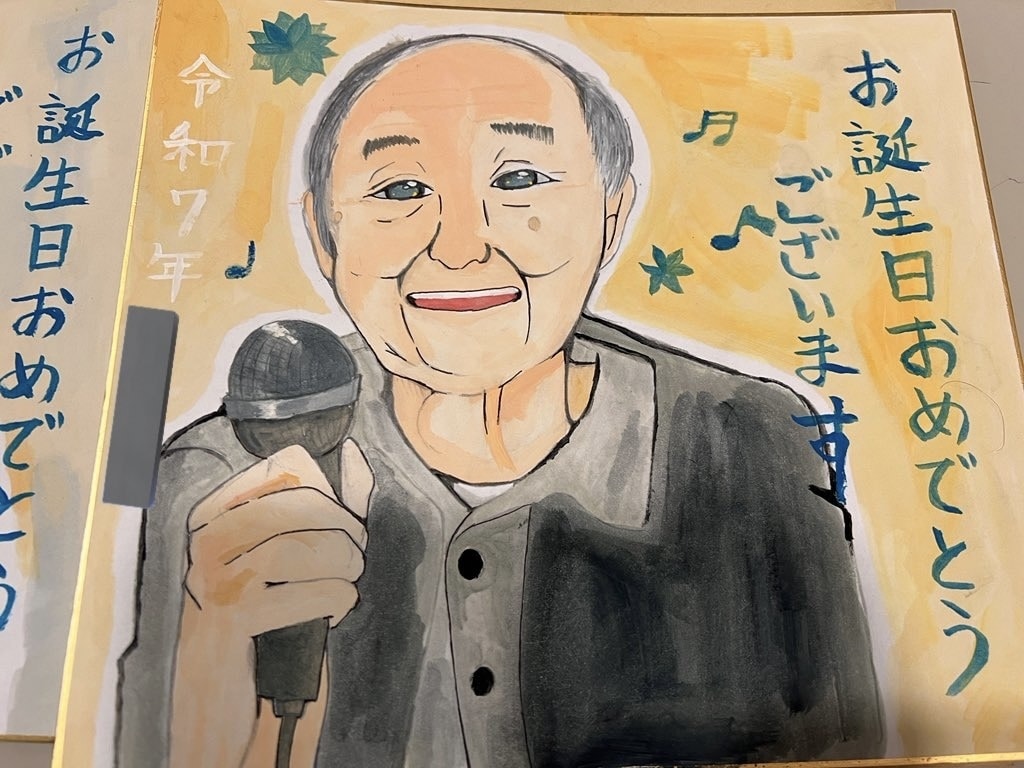 お誕生日おめでとう
ございます
令和7年
お誕生日おめでとう